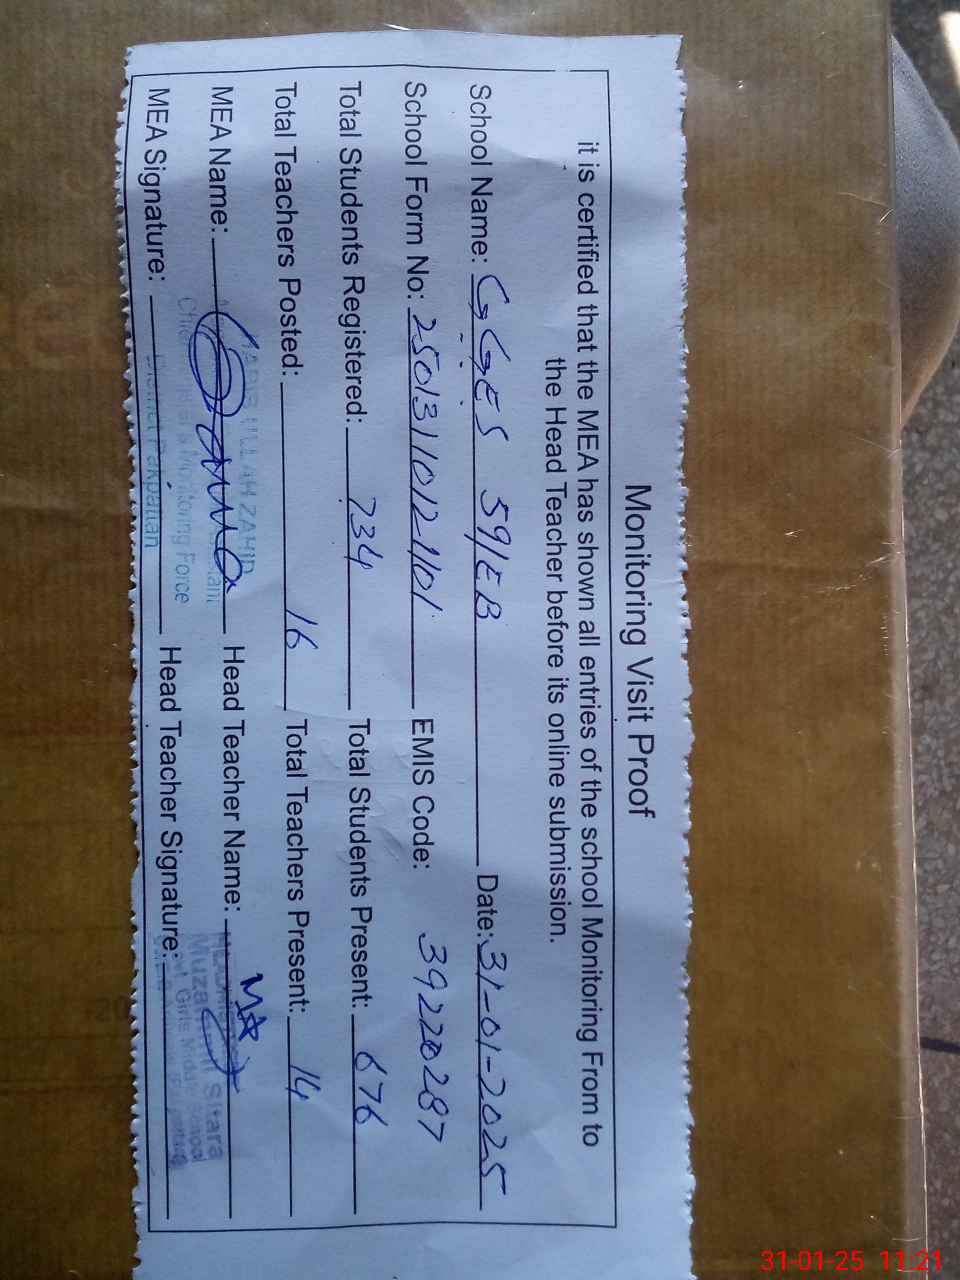 Monitoring Visit Proof
it is certified that the MEA has shown all entries of the school Monitoring From to
the Head Teacher before its online submission.
School Name: GGES 59/EB Date: 31-01-2025
School Form No: 25013110121101 EMIS Code: 39220287
Total Students Registered: 734 Total Students Present: 676
Total Teachers Posted: 16 Total Teachers Present: 14
MEA Name: Head Teacher Name:
MEA Signature: Head Teacher Signature:
ZAHID
Monitoring Force
District Pakpattan
Sitara
Girls Middle School
31-01-25 11:21